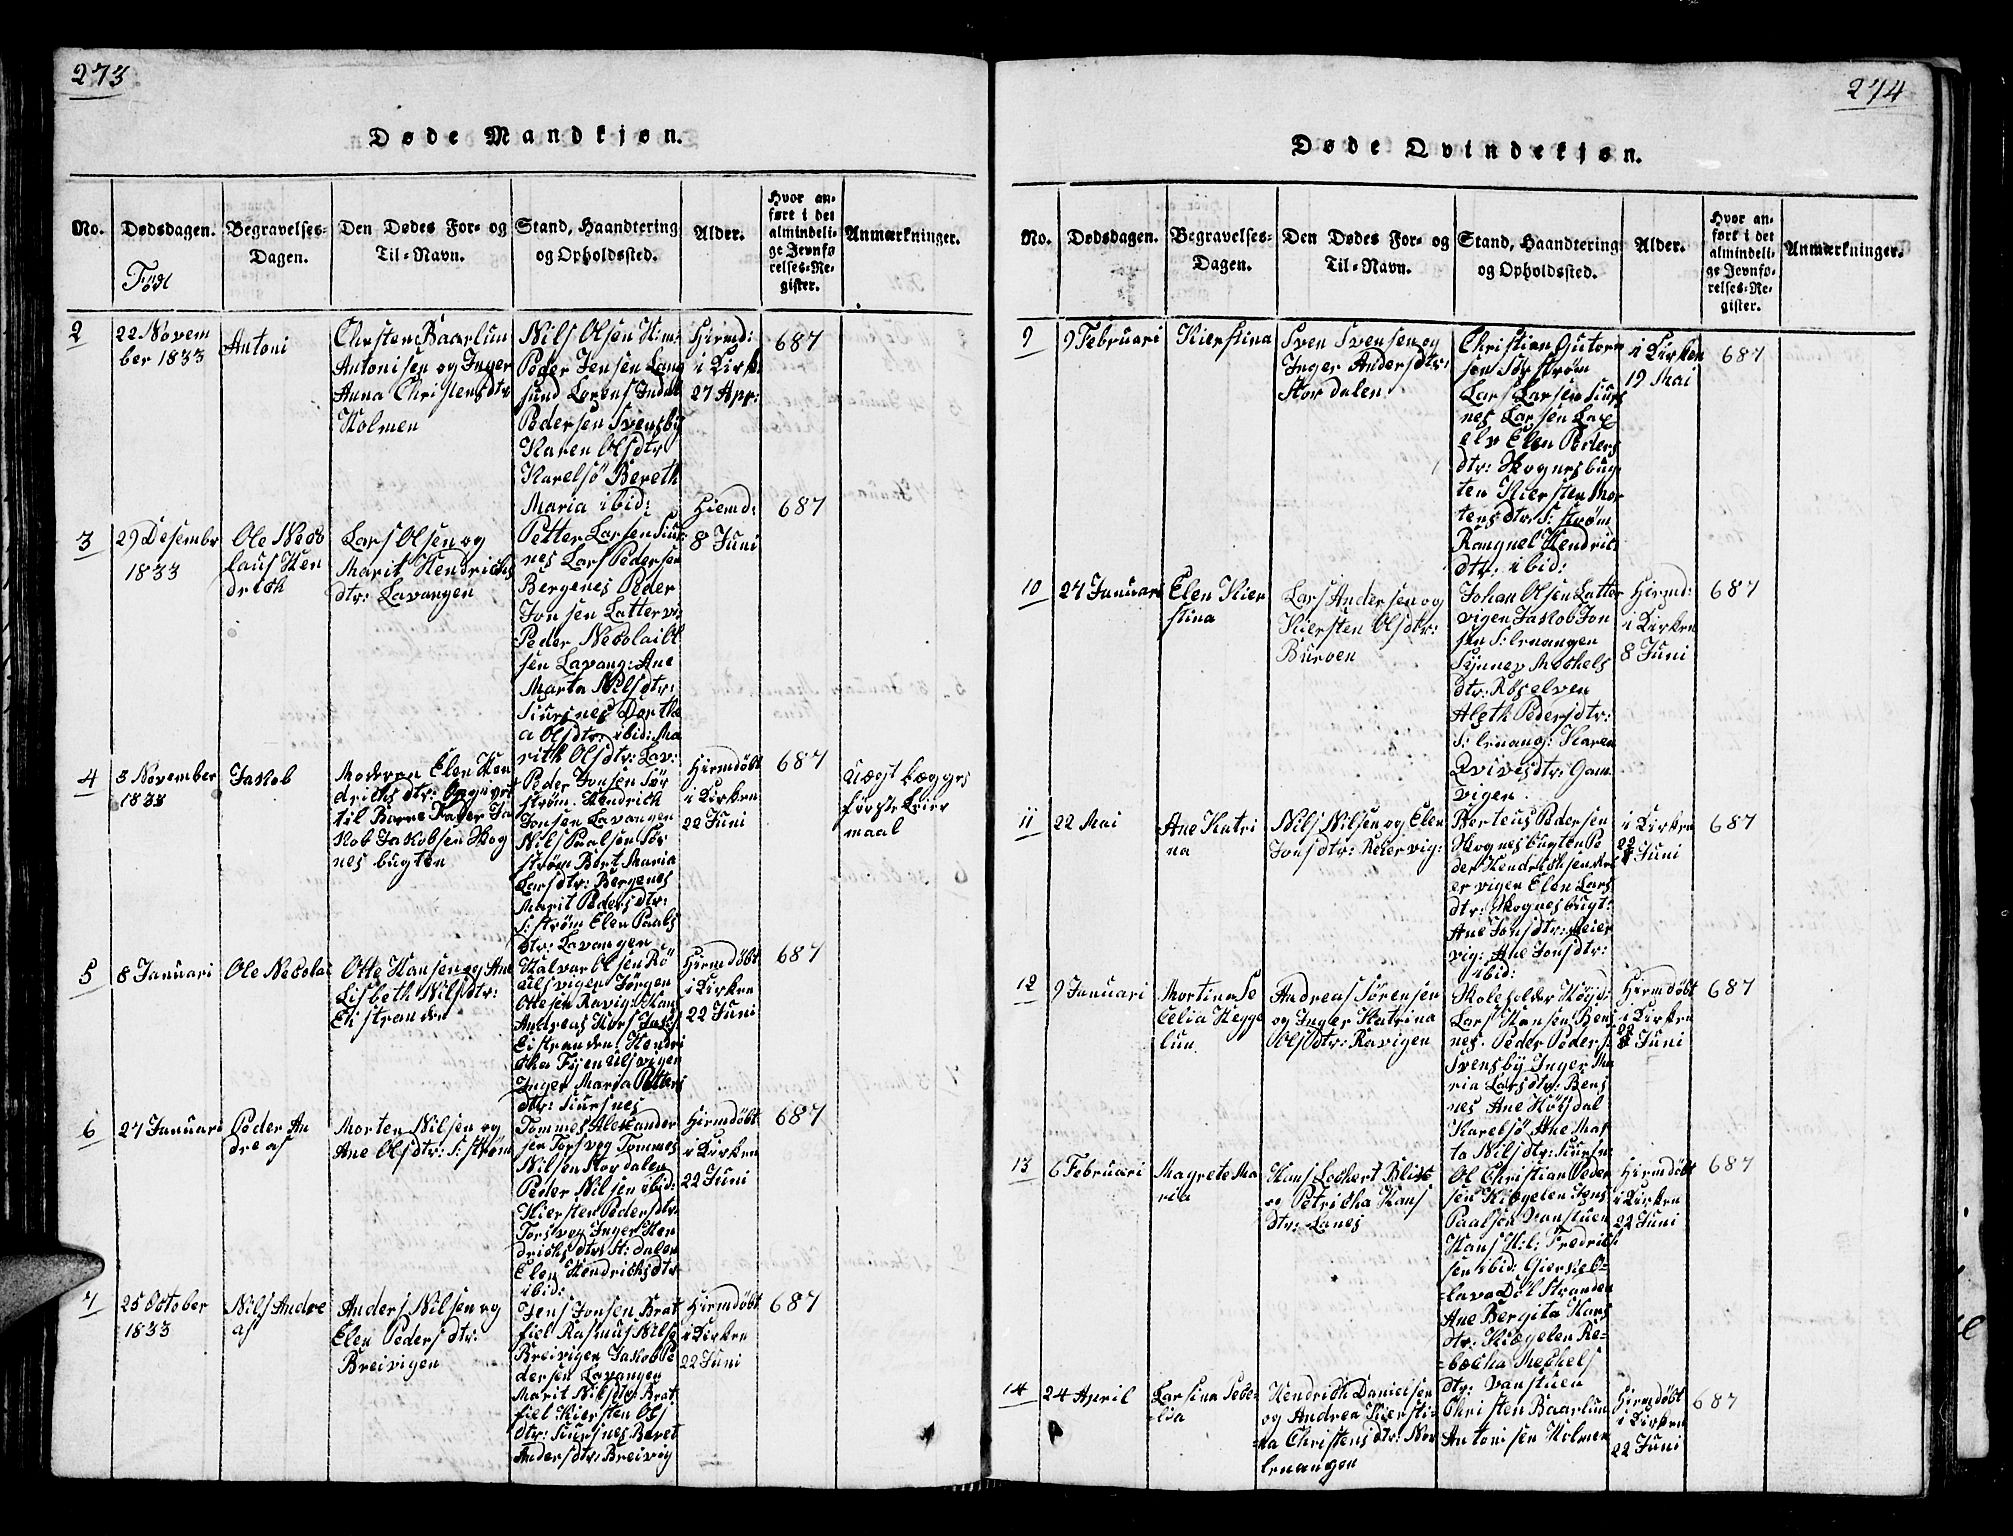 273
Døde Mandkjøn.
No.
Dødsdagen.
Født
Begravelses-
Dagen.
Den Dødes For- og
Til-Navn.
Stand, Haandtering
og Opholdssted.
Alder.
Hvor an-
ført i det
almindeli-
ge Jevnfø
relses-Re-
gister.
Anmærkninger.
2
22 Novem
ber 1833
Antoni
Christen Baarlun
Antonisen og Inger
Anna Christensdtr
Holmen
Nils Olsen
Peder Jensen Lang
sund Lorens
Pedersen Svensby
Karen Olsdtr
Karelsö Bereth
Maria ibid:
Hiemd:
i Kirk:
27 Apr:
687
3
29 Desember
1833
Ole Neco
laus Hen
drich
Lars Olsen og
Marit Hendrichs
dtr: Lavangen
Petter Larsen Siur
nes Lars Pedersen
Bergenes Peder
Jonsen Lattervi:
Peder Necolai Ol
sen Lavang: Ane
Marta Nilsdtr:
Siursnes Dorthe
a Olsdtr: ibid: Ma
rith Olsdtr: Lav:
Hiemd:
8 Juni
687
4
3 November
1833
Jakob
Moderen Elen Hen
drichsdtr: Opgivet
til Barne Fader Ja
kob Jakobsen Skog
nes bugten
Peder Jonsen Sör
strøm. Hendrich
Jonsen Lavangen
Nils Paalsen Sör
strøm Bert Maria
Larsdtr: Bergenes
Marit Pedersdtr:
S: strøm Elen Paals
dtr: Lavangen
Hiemdöbt
i Kirken
22 Juni
687
Uægt begges
förste Leier
maal
5
8 Januari
Ole Necolai
Otte Hansen og Ane
Lisbeth Nilsdtr:
Eistranden
Halvar Olsen Rö
Ulsvigen Jörgen
Ottesen Ravig: Hans
Andreas
Eistranden. Hendri
cka Fyen Ulsvigen
Inger Maria Petters
dtr: Siursnes
Hiemdöbt
i Kirken
22 Juni
687
6
27 Januari
Peder An
dreas
Morten Nilsen og
Ane Olsdtr: S: strøm
Tommes Aleksander
sen Torsveg Tommes
Nilsen Stordalen
Peder Nilsen ibid:
Kiersten Pedersdtr:
Torsveg Inger Hen
drichsdtr St: dalen
Elen Hendrichsdtr
ibid:
Hiemdöbt
i Kirken
22 Juni
687
7
25 October
1833
Nils Andre
as
Anders Nilsen og
Elen Pedersdtr:
Breivigen
Jens Jonsen Brat
fiel Rasmus Nilse
Breivigen Jakob Pe
dersen Lavangen
Marit Nilsdtr Brat
fiel Kiersten Ols
dtr: Siursnes Beret
Andersdtr: Breivig
Hiemdöbt
i Kirken
22 Juni
687
274
Døde Qvindekjøn.
No.
Dødsdagen.
Begravelses-
Dagen.
Den Dødes For- og
Til-Navn.
Stand, Haandtering
og Opholdssted.
Alder.
Hvor an-
ført i det
almindeli-
ge Jevnfø-
relses-Re-
gister.
Anmærkninger.
9
9 Februari
Kierstina
Sven Svensen og
Inger Andersdtr:
Stordalen
Christian Gutorm
sen Sör strøm
Lars Larsen Siurs
nes Larsen Lax
elv Elen Peders
dtr: Skognes bug
ten Kiersten Mor
tensdtr: S: strøm
Rangnel Hendric
dtr: ibid:
i Kirken
19 Mai
687
10
27 Januari
Elen Kier
stina
Lars Andersen og
Kiersten Olsdtr:
Burøen
Johan Olsen Latter
vigen Jaskob Jon
sen S: lenangen
Synnev Mechels
dtr: Røselven
Aleth Pedersdtr:
S: lenang: Karen
Qvivesdtr: Gam
vigen
Hiemd:
i Kirken
8 Juni
687
11
22 Mai
Ane Katri
na
Nils Nilsen og Elen
Jonsdtr: Reiervig:
Berteus Pedersen
Skognesbugten Pe
der Hendrichsen Rei
ervigen Elen Lars
dtr: Skognesbugt:
Ane Jonsdtr: Reier
vig: Ane Jonsdtr:
ibid:
i Kirken
22 Juni
687
12
9 Januari
Mortina Se
celia Hegge
lun
Andreas Sörensen
og Inger Katrina
Olsdtr: Ravigen
Skoleholder
Lars Hansen Bens
nes. Peder Peders:
Svensby Inger Ma
ria Larsdtr: Bens
nes Ane Höisdal
Karelsö Ane Mar
ta Nilsdtr: Siursn:
Hiemdöbt
i Kirken
22 Juni
687
13
6 Februari
Magrete Ma
ria
Hans Lockert Blix
og Petricha Hans
dtr: Lanes
Ol Christian Peder
sen Kiægelen Jens
Paalsen Vanstuen
Hans K: l: Fredrik
sen ibid: Gierkeb-
lava Döl Stranden
Ane Bergita Hans
dtr: Kiægelen Re-
becka Mechels
dtr: Vanstuen
Hiemdöbt
i Kirken
22 Juni
687
14
24 April
Larsina Pede-
lia
Hendrich Danielsen
og Andrea Kiersti-
na Christensdtr: Nor
lenangen
Christen Baarlun
Antonisen Holmen
Hiemdöbt
i Kirken
22 Juni
687